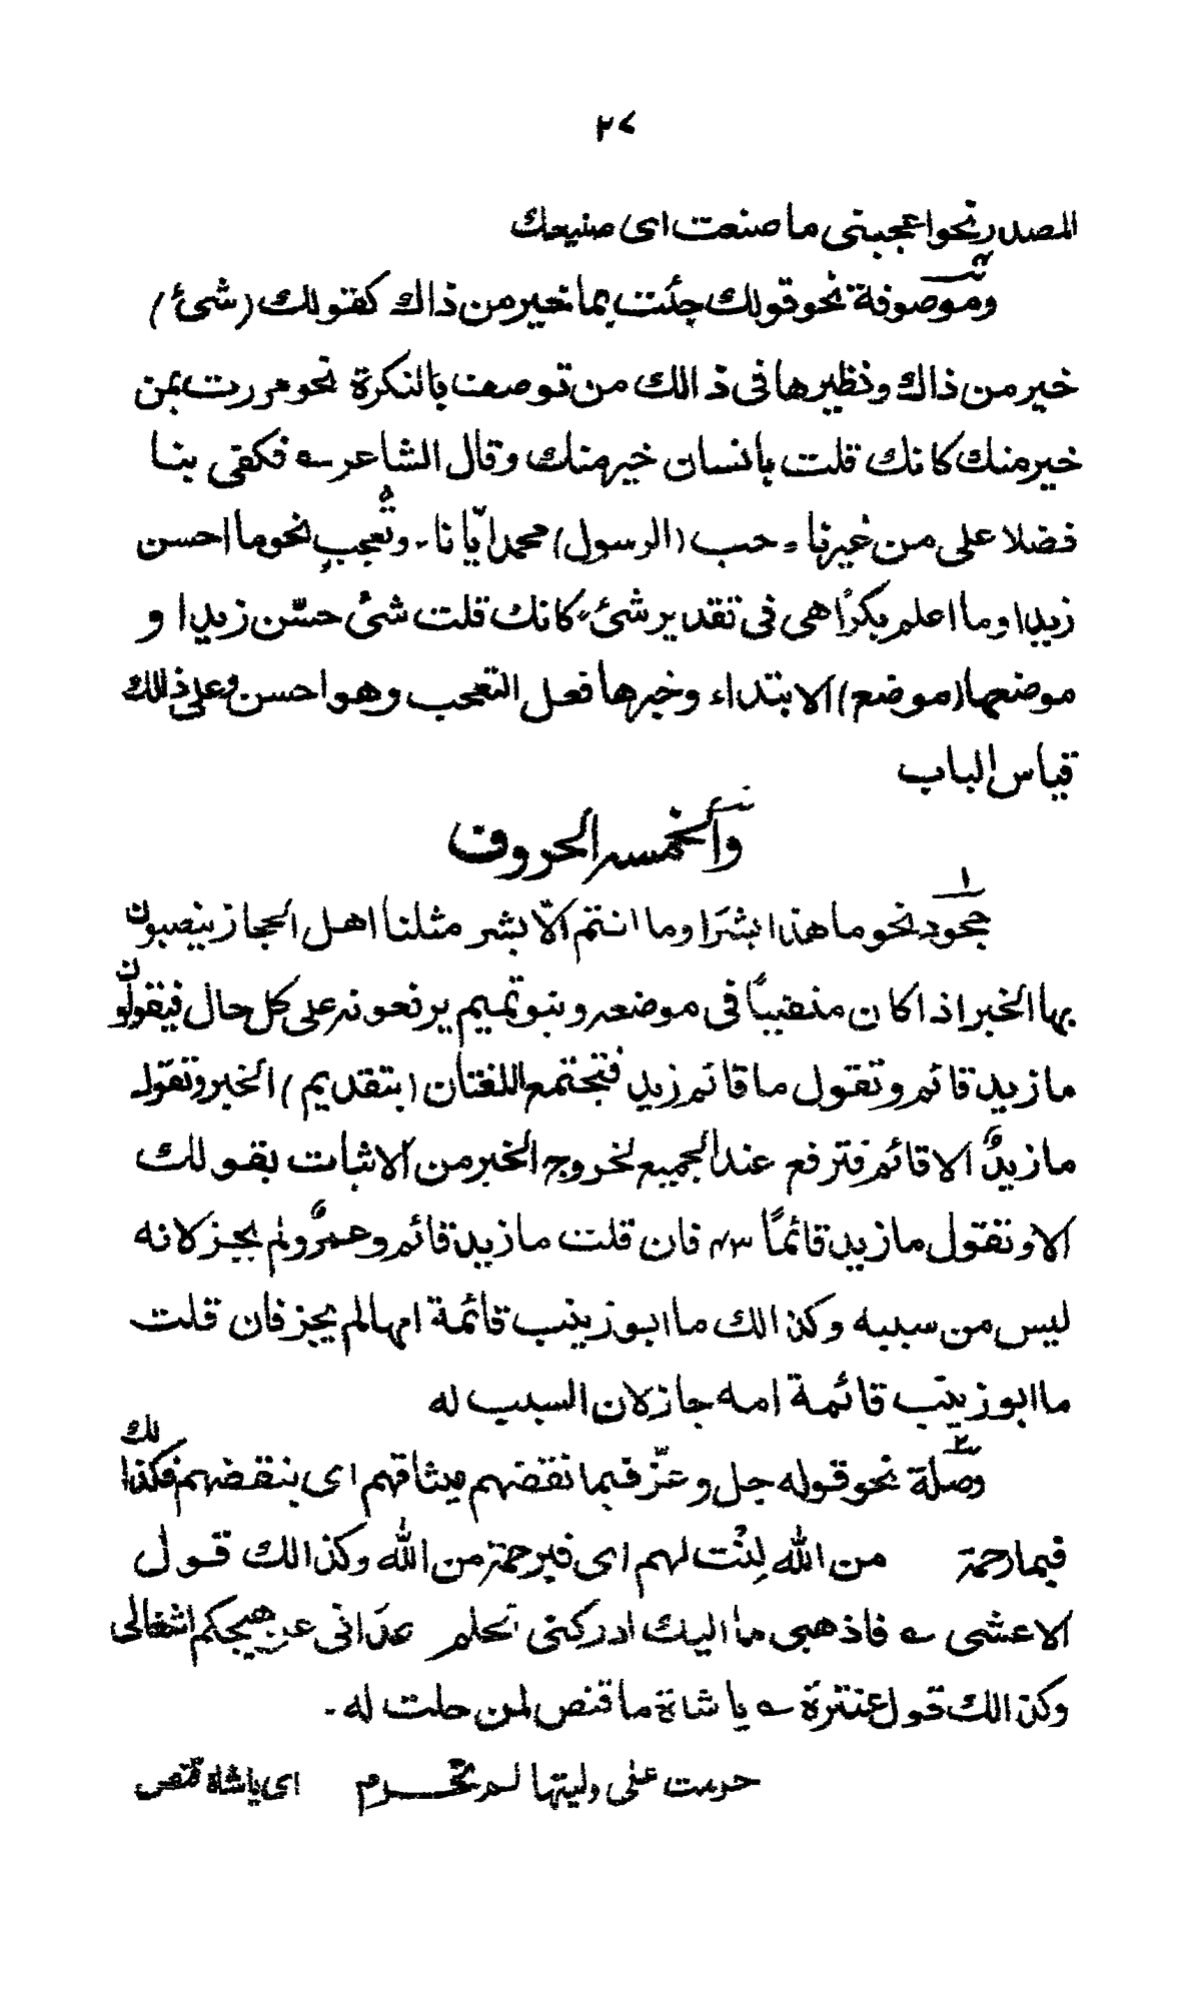 ٢٧
المصدر نحو اعجبنى ما صنعت اى صنيعك
وموصوفة نحو قولك جئت بما خير من ذاك كقولك (شئ)
خير من ذاك ونظيرها فى ذالك من توصف بالنكرة نحو مررت بمن
خير منك كانك قلت بانسان خير منك وقال الشاعر ؎ فكفى بنا
فضلا على من غيرنا ۔ حب (الرسول) محمد ايّانا ۔ وتعجب نحو ما احسن
زيدا وما اعلم بكرًا هى فى تقدير شئ كانك قلت شئ حسّن زيدا و
موضعها (موضع) الابتداء وخبرها فعل التعجب وهو احسن وعلى ذالك
قياس الباب
والخمسه الحروف
١
جحود نحو ما هذا بشرًا وما انتم الّا بشر مثلنا اهل الحجاز ينصبون
بها الخبر اذا كان منفيًا فى موضعه وبنو تميم يرفعونه على كل حال فيقولون
ما زيد قائم وتقول ما قائم زيد فتجتمع اللغتان (بتقديم) الخبر وتقول
ما زيدٌ الا قائم فترفع عند الجميع لخروج الخبر من الاثبات بقولك
الا وتقول ما زيد قائمًا ٣؍ فان قلت ما زيد قائم وعمرٌو لم يجز لانه
ليس من سببه وكذالك ما ابو زينب قائمة امها لم يجز فان قلت
ما ابو زينب قائمة امه جاز لان السبب له
٢
وصلة نحو قوله جل وعزّ فبما نقضهم ميثاقهم اى بنقضهم فكذالك
فبما رحمة من الله لِنْت لهم اى فبرحمة من الله وكذالك قول
الاعشى ؎ فاذهبى ما اليك ادركنى الحلم عدَانى عن هيجكم اشغالى
وكذالك قول عنترة ؎ يا شاة ما قنص لمن حلت له ۔
حرمت على وليتها لم تحرم اى يا شاة قنص